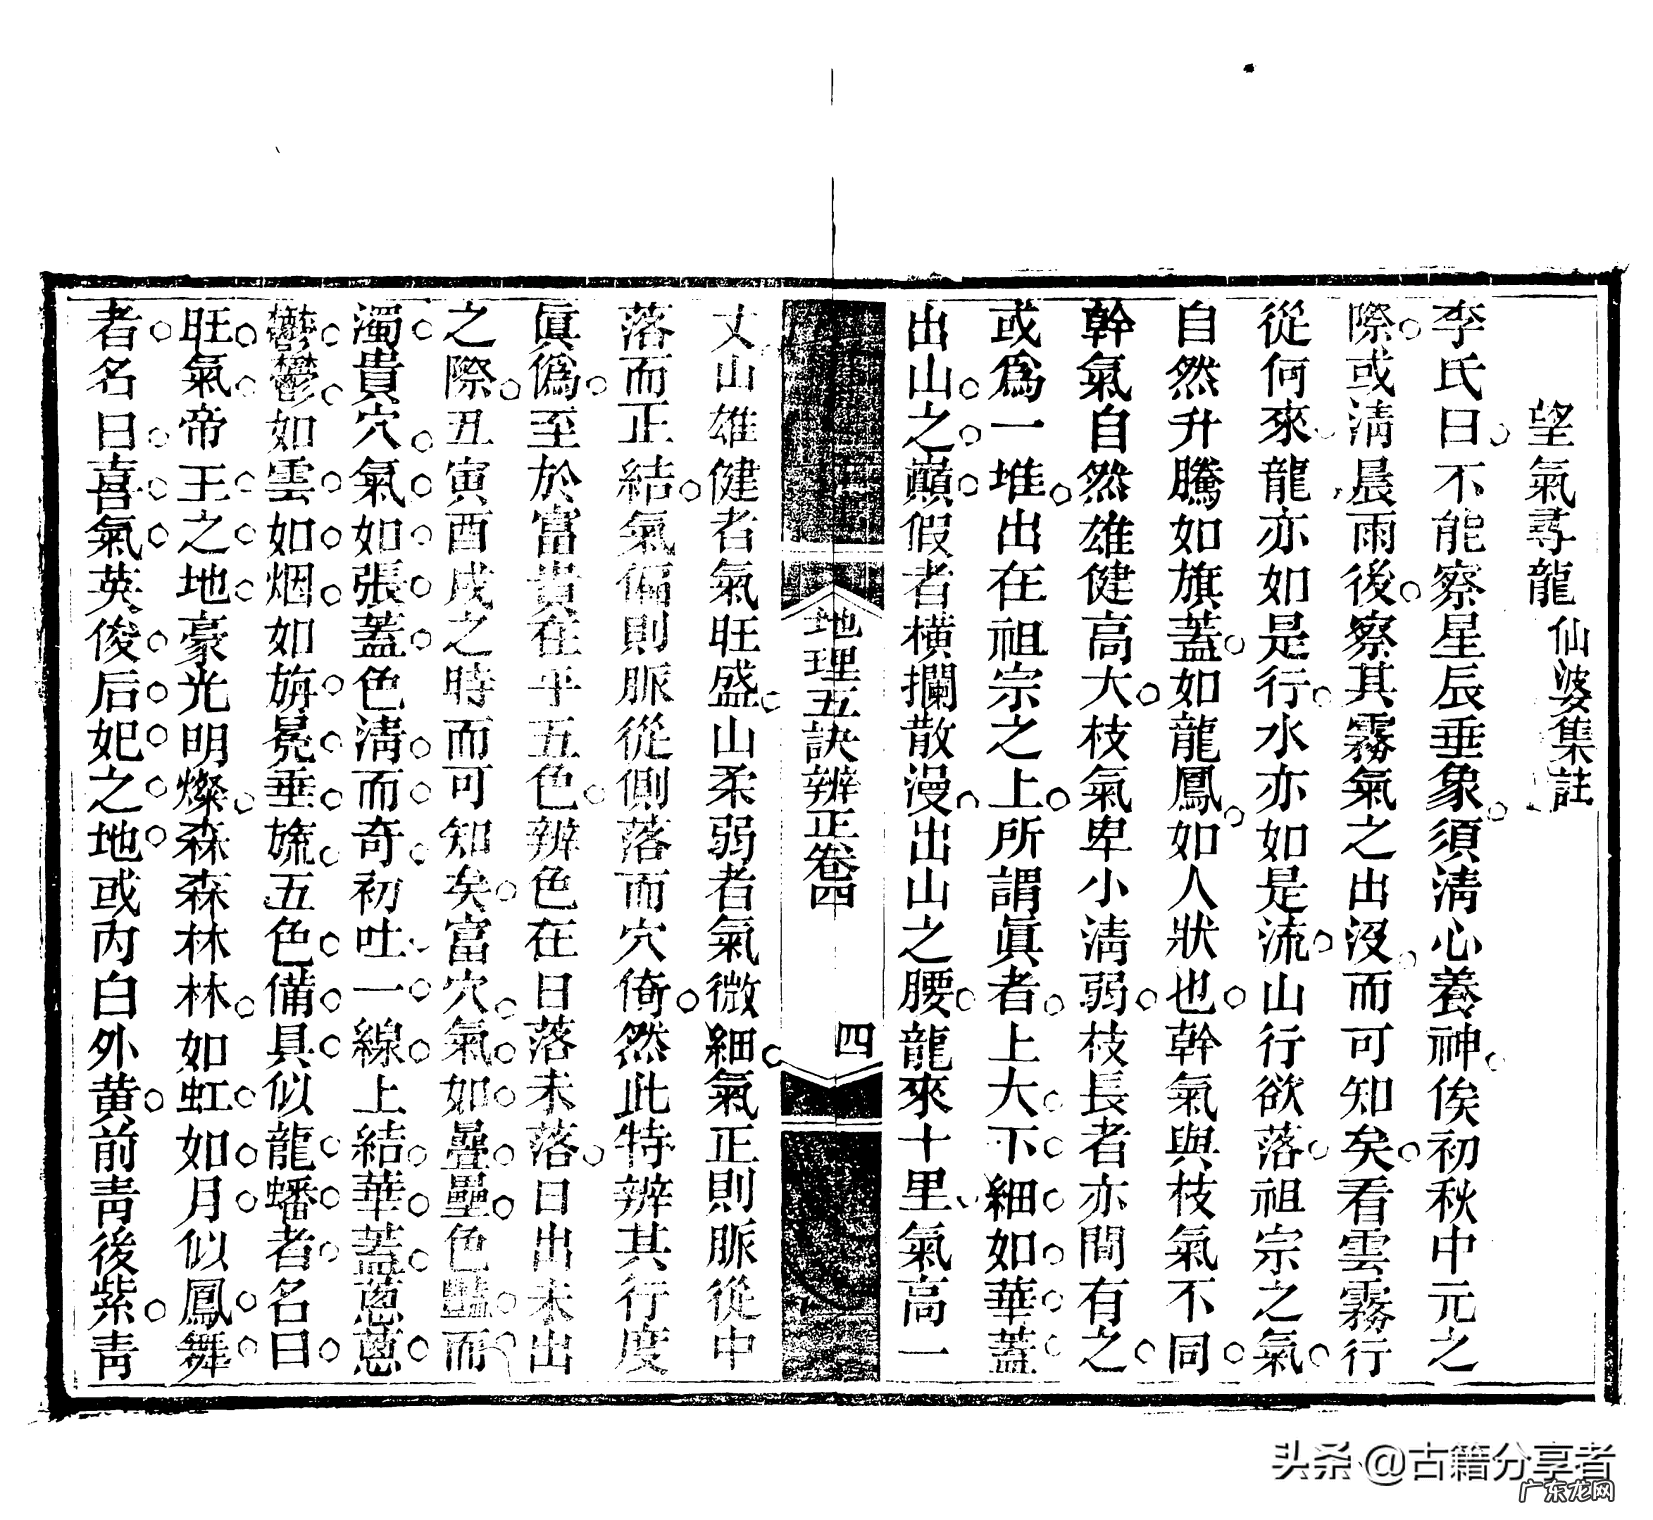 望氣尋龍 仙婆集註
李氏曰不能察星辰垂象須清心養神俟初秋中元之
際或清晨雨後察其霧氣之出沒而可知矣看雲霧行
從何來龍亦如是行水亦如是流山行欲落祖宗之氣
自然升騰如旗蓋如龍鳳如人狀也幹氣與枝氣不同
幹氣自然雄健高大枝氣卑小清弱枝長者亦間有之
或爲一堆出在祖宗之上所謂眞者上大下細如華蓋
出山之巔假者橫攔散漫出山之腰龍來十里氣高一
地理五訣辨正卷四 四
丈山雄健者氣旺盛山柔弱者氣微細氣正則脈從中
落而正結氣偏則脈從側落而穴倚然此特辨其行度
眞僞至於富貴在乎五色辨色在日落未落日出未出
之際丑寅酉戌之時而可知矣富穴氣如疊壘色豔而
濁貴穴氣如張蓋色清而奇初吐一線上結華蓋蔥蔥
鬱鬱如雲如烟如旃晃垂旒五色備具似龍蟠者名曰
旺氣帝王之地豪光明燦森森林林如虹如月似鳳舞
者名曰喜氣英俊后妃之地或內白外黃前靑後紫靑
头条 @古籍分享者
广东龙网